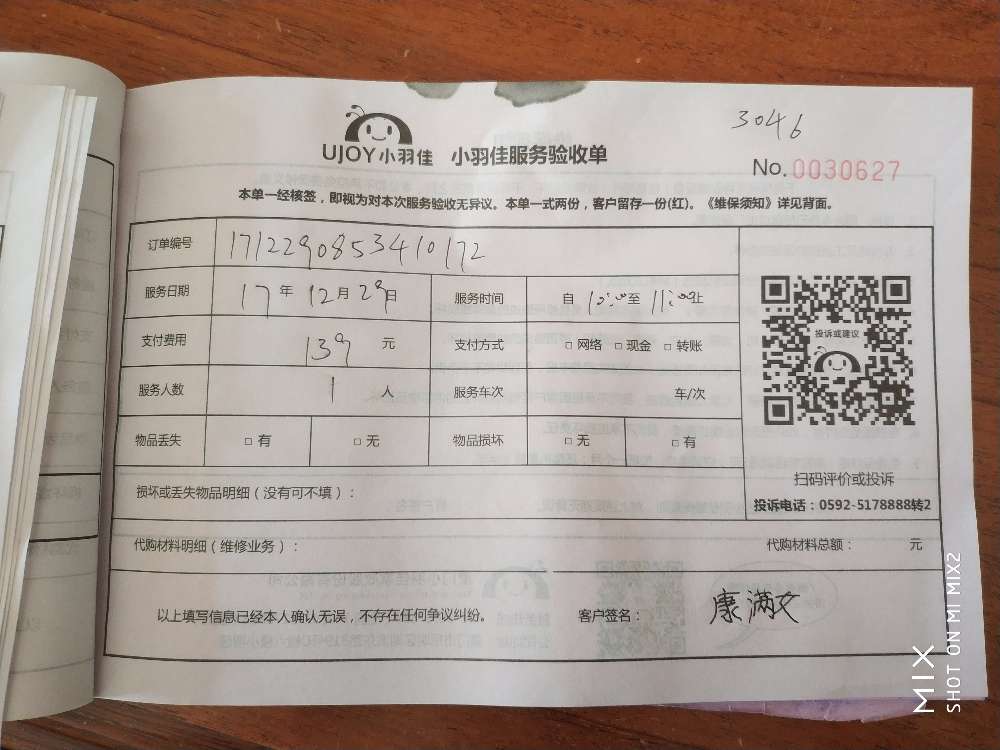 3046
UJOY小羽佳 小羽佳服务验收单
No.0030627
本单一经核签，即视为对本次服务验收无异议。本单一式两份，客户留存一份(红)。《维保须知》详见背面。
订单编号 1712290853410172
服务日期 17年12月29日 服务时间 自10:00至11:00止
支付费用 139元 支付方式 □网络 □现金 □转账
服务人数 1人 服务车次 车/次
物品丢失 □有 □无 物品损坏 □无 □有
投诉或建议
扫码评价或投诉
投诉电话：0592-5178888转2
损坏或丢失物品明细（没有可不填）：
代购材料明细（维修业务）： 代购材料总额： 元
以上填写信息已经本人确认无误，不存在任何争议纠纷。 客户签名：康满文
MIX
SHOT ON MI MIX2